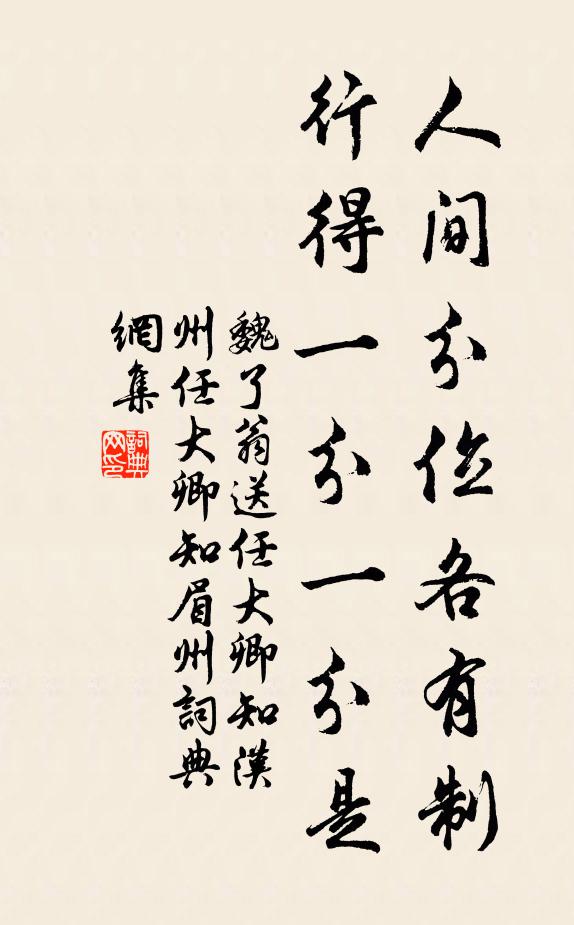 人间分位各有制
行得一分一分是
魏了翁送任大卿知漢
州任大卿知眉州詞典
網集
詞典
网印